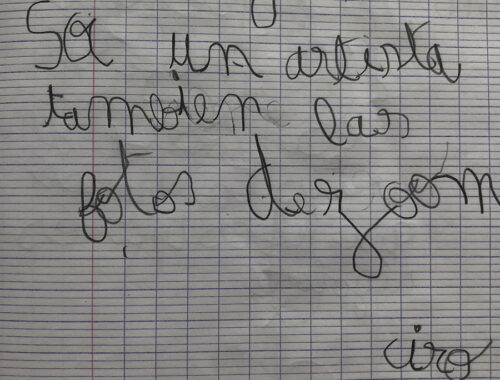 Sa un artista
tambien las
fotos der yom
ciro